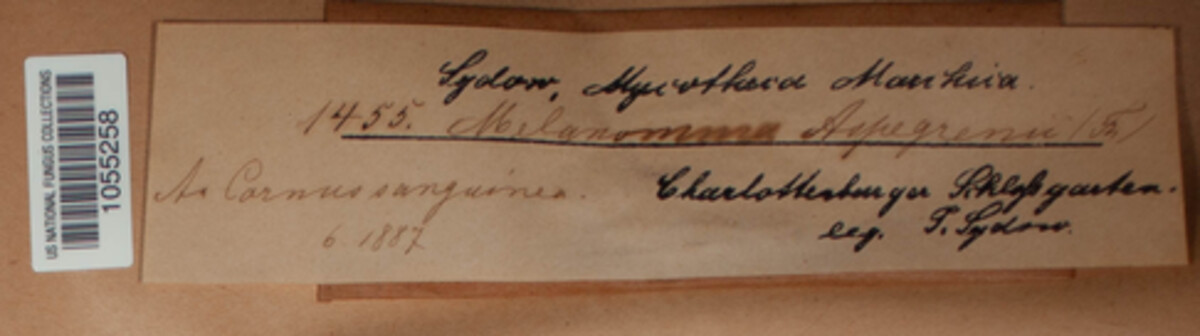 US NATIONAL FUNGUS COLLECTIONS
1055258
Sydow, Mycotheca Marchica.
1455. Melanomma Aspegrenii (Fr.)
An Cornus sanguinea.
6. 1887
Charlottenburger Schloßgarten.
leg. P. Sydow.